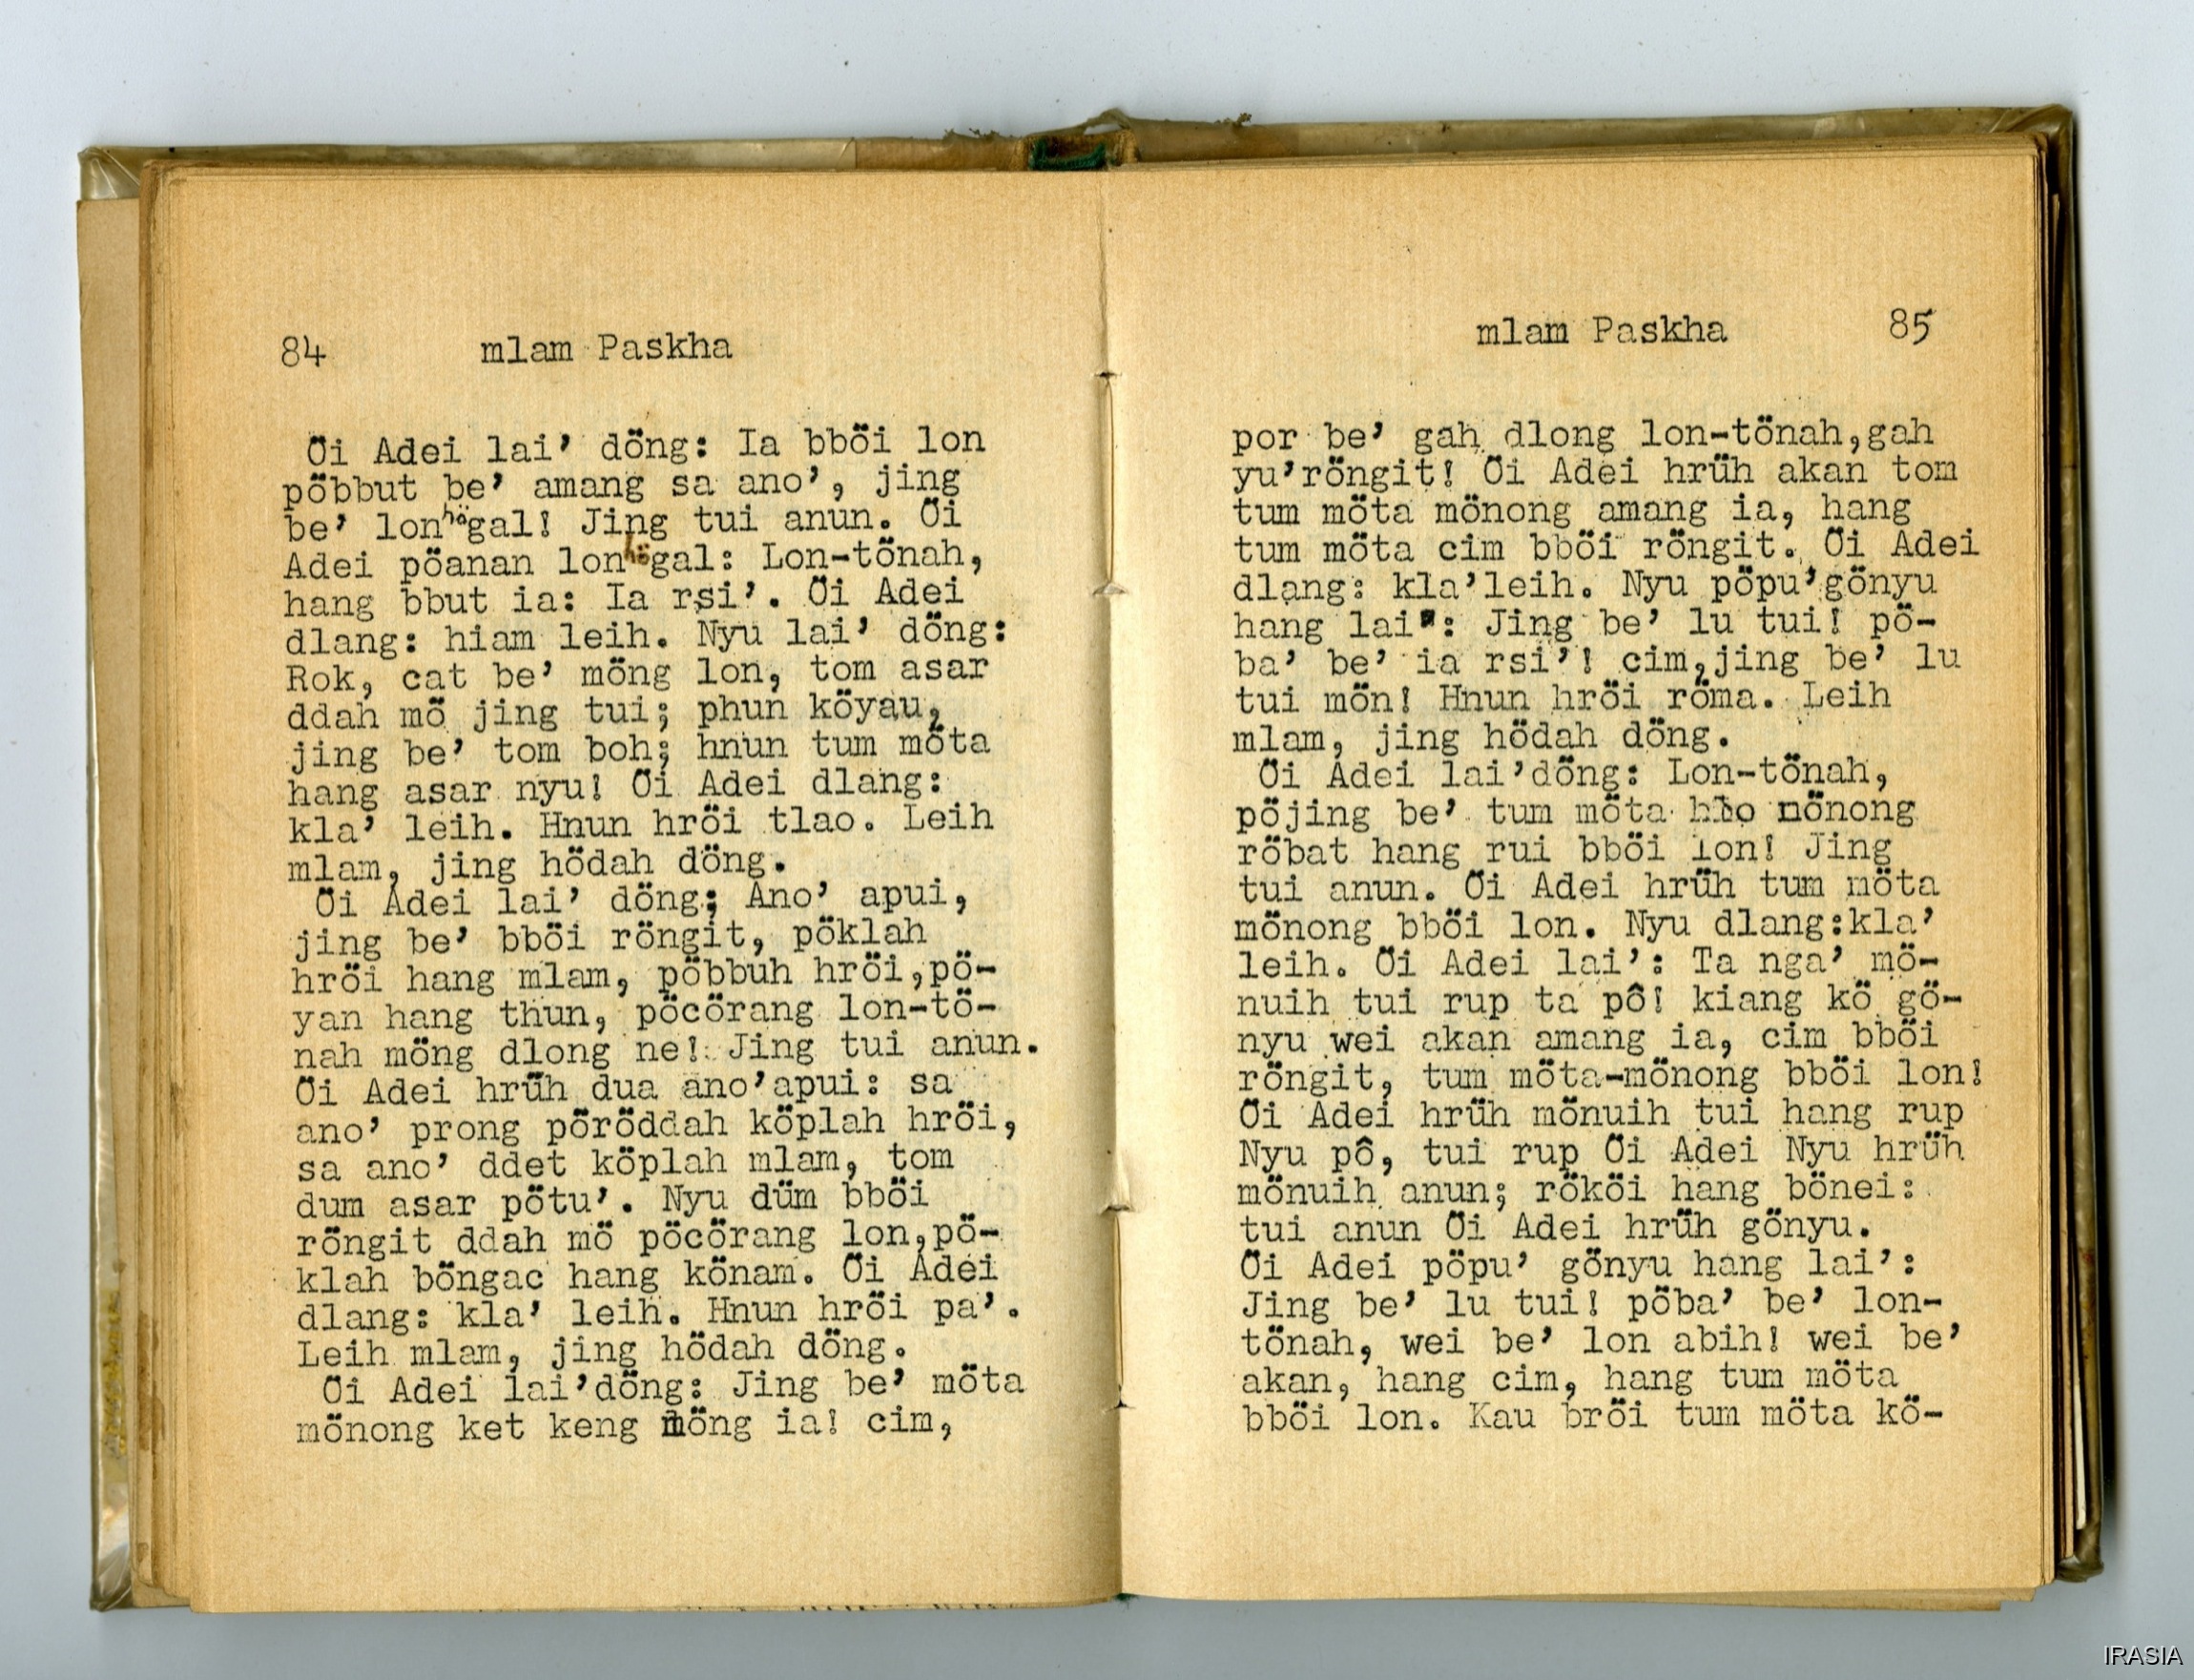 84 mlam Paskha
Öi Adei lai’ döng: Ia bböi lon
pöbbut be’ amang sa ano’, jing
be’ lon högal! Jing tui anun. Öi
Adei pöanan lon högal: Lon-tönah,
hang bbut ia: Ia rsi’. Öi Adei
dlang: hiam leih. Nyu lai’ döng:
Rok, cat be’ möng lon, tom asar
ddah mö jing tui; phun köyau,
jing be’ tom boh; hnun tum möta
hang asar nyu! Öi Adei dlang:
kla’ leih. Hnun hröi tlao. Leih
mlam, jing hödah döng.
Öi Adei lai’ döng: Ano’ apui,
jing be’ bböi röngit, pöklah
hröi hang mlam, pöbbuh hröi,pö-
yan hang thun, pöcörang lon-tö-
nah möng dlong ne! Jing tui anun.
Öi Adei hrüh dua ano’apui: sa
ano’ prong pöröddah köplah hröi,
sa ano’ ddet köplah mlam, tom
dum asar pötu’. Nyu düm bböi
röngit ddah mö pöcörang lon,pö-
klah böngac hang könam. Öi Adei
dlang: kla’ leih. Hnun hröi pa’.
Leih mlam, jing hödah döng.
Öi Adei lai’döng: Jing be’ möta
mönong ket keng möng ia! cim,
mlam Paskha 85
por be’ gah dlong lon-tönah,gah
yu’röngit! Öi Adei hrüh akan tom
tum möta mönong amang ia, hang
tum möta cim bböi röngit. Öi Adei
dlang: kla’leih. Nyu pöpu’gönyu
hang lai’: Jing be’ lu tui! pö-
ba’ be’ ia rsi’! cim,jing be’ lu
tui mön! Hnun hröi röma. Leih
mlam, jing hödah döng.
Öi Adei lai’döng: Lon-tönah,
pöjing be’ tum möta mönong
röbat hang rui bböi lon! Jing
tui anun. Öi Adei hrüh tum möta
mönong bböi lon. Nyu dlang:kla’
leih. Öi Adei lai’: Ta nga’ mö-
nuih tui rup ta pô! kiang kö gö-
nyu wei akan amang ia, cim bböi
röngit, tum möta-mönong bböi lon!
Öi Adei hrüh mönuih tui hang rup
Nyu pô, tui rup Öi Adei Nyu hrüh
mönuih anun; rököi hang bönei:
tui anun Öi Adei hrüh gönyu.
Öi Adei pöpu’ gönyu hang lai’:
Jing be’ lu tui! pöba’ be’ lon-
tönah, wei be’ lon abih! wei be’
akan, hang cim, hang tum möta
bböi lon. Kau bröi tum möta kö-
IRASIA